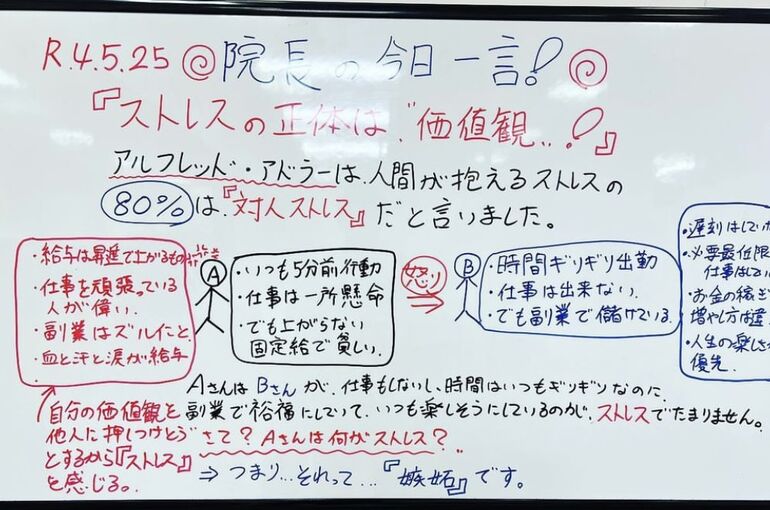 R.4.5.25 院長の今日一言!
『ストレスの正体は"価値観"!』
アルフレッド・アドラーは、人間が抱えるストレスの
80%は『対人ストレス』だと言いました。
・給与は昇進で上がるもの
・仕事を頑張っている
人が偉い。
・副業はズルイこと
・血と汗と涙が給与
A
・いつも5分前行動
・仕事は一所懸命
・でも上がらない
固定給で貧しい。
怒り
⇒
B
・時間ギリギリ出勤
・仕事は出来ない。
・でも副業で儲けている。
・遅刻はしていな
・必要最低限
仕事はしてい
・お金の稼ぎ
増やし方は
・人生の楽しさ
優先。
AさんはBさんが、仕事もしないし、時間はいつもギリギリなのに、
副業で裕福にしていて、いつも楽しそうにしているのが、ストレスでたまりません。
自分の価値観を
他人に押しつけ
とするから『ストレス』
を感じる。
さて?Aさんは何がストレス?
⇒つまり…それって…『嫉妬』です。